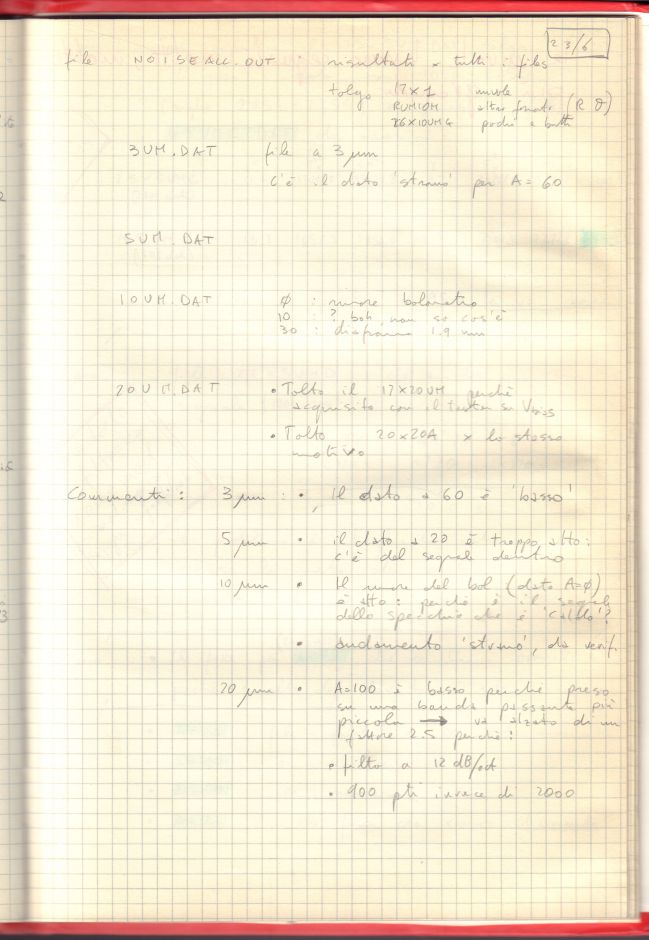 23/6
file NOISEALL.OUT : risultati x tutti i files
tolgo 17x1 nuvole
RUM10M altro formato (R θ)
pochi e brutti
3UM.DAT file a 3 µm
c'è il dato 'strano' per A = 60
5UM.DAT
10UM.DAT ø : rumore bolometro
10 : ? boh, non so cos'è
30 : diaframma 1.9 mm
20UM.DAT • Tolto il 17x20UM perchè
acquisito con il tester su Vbias
• Tolto 20x20A x lo stesso
motivo
Commenti : 3 µm : • Il dato a 60 è 'basso'
5 µm • il dato a 20 è troppo alto:
c'è del segnale dentro
10 µm • Il rumore del bol (dato A=ø)
è alto : perché è il segnale
dello specchio che è 'caldo'?
• andamento 'strano', da verif.
20 µm • A=100 è basso perché preso
su una banda passante più
piccola → va alzato di un
fattore 2.5 perchè:
• filtro a 12 dB/oct
• 900 pti invece di 2000